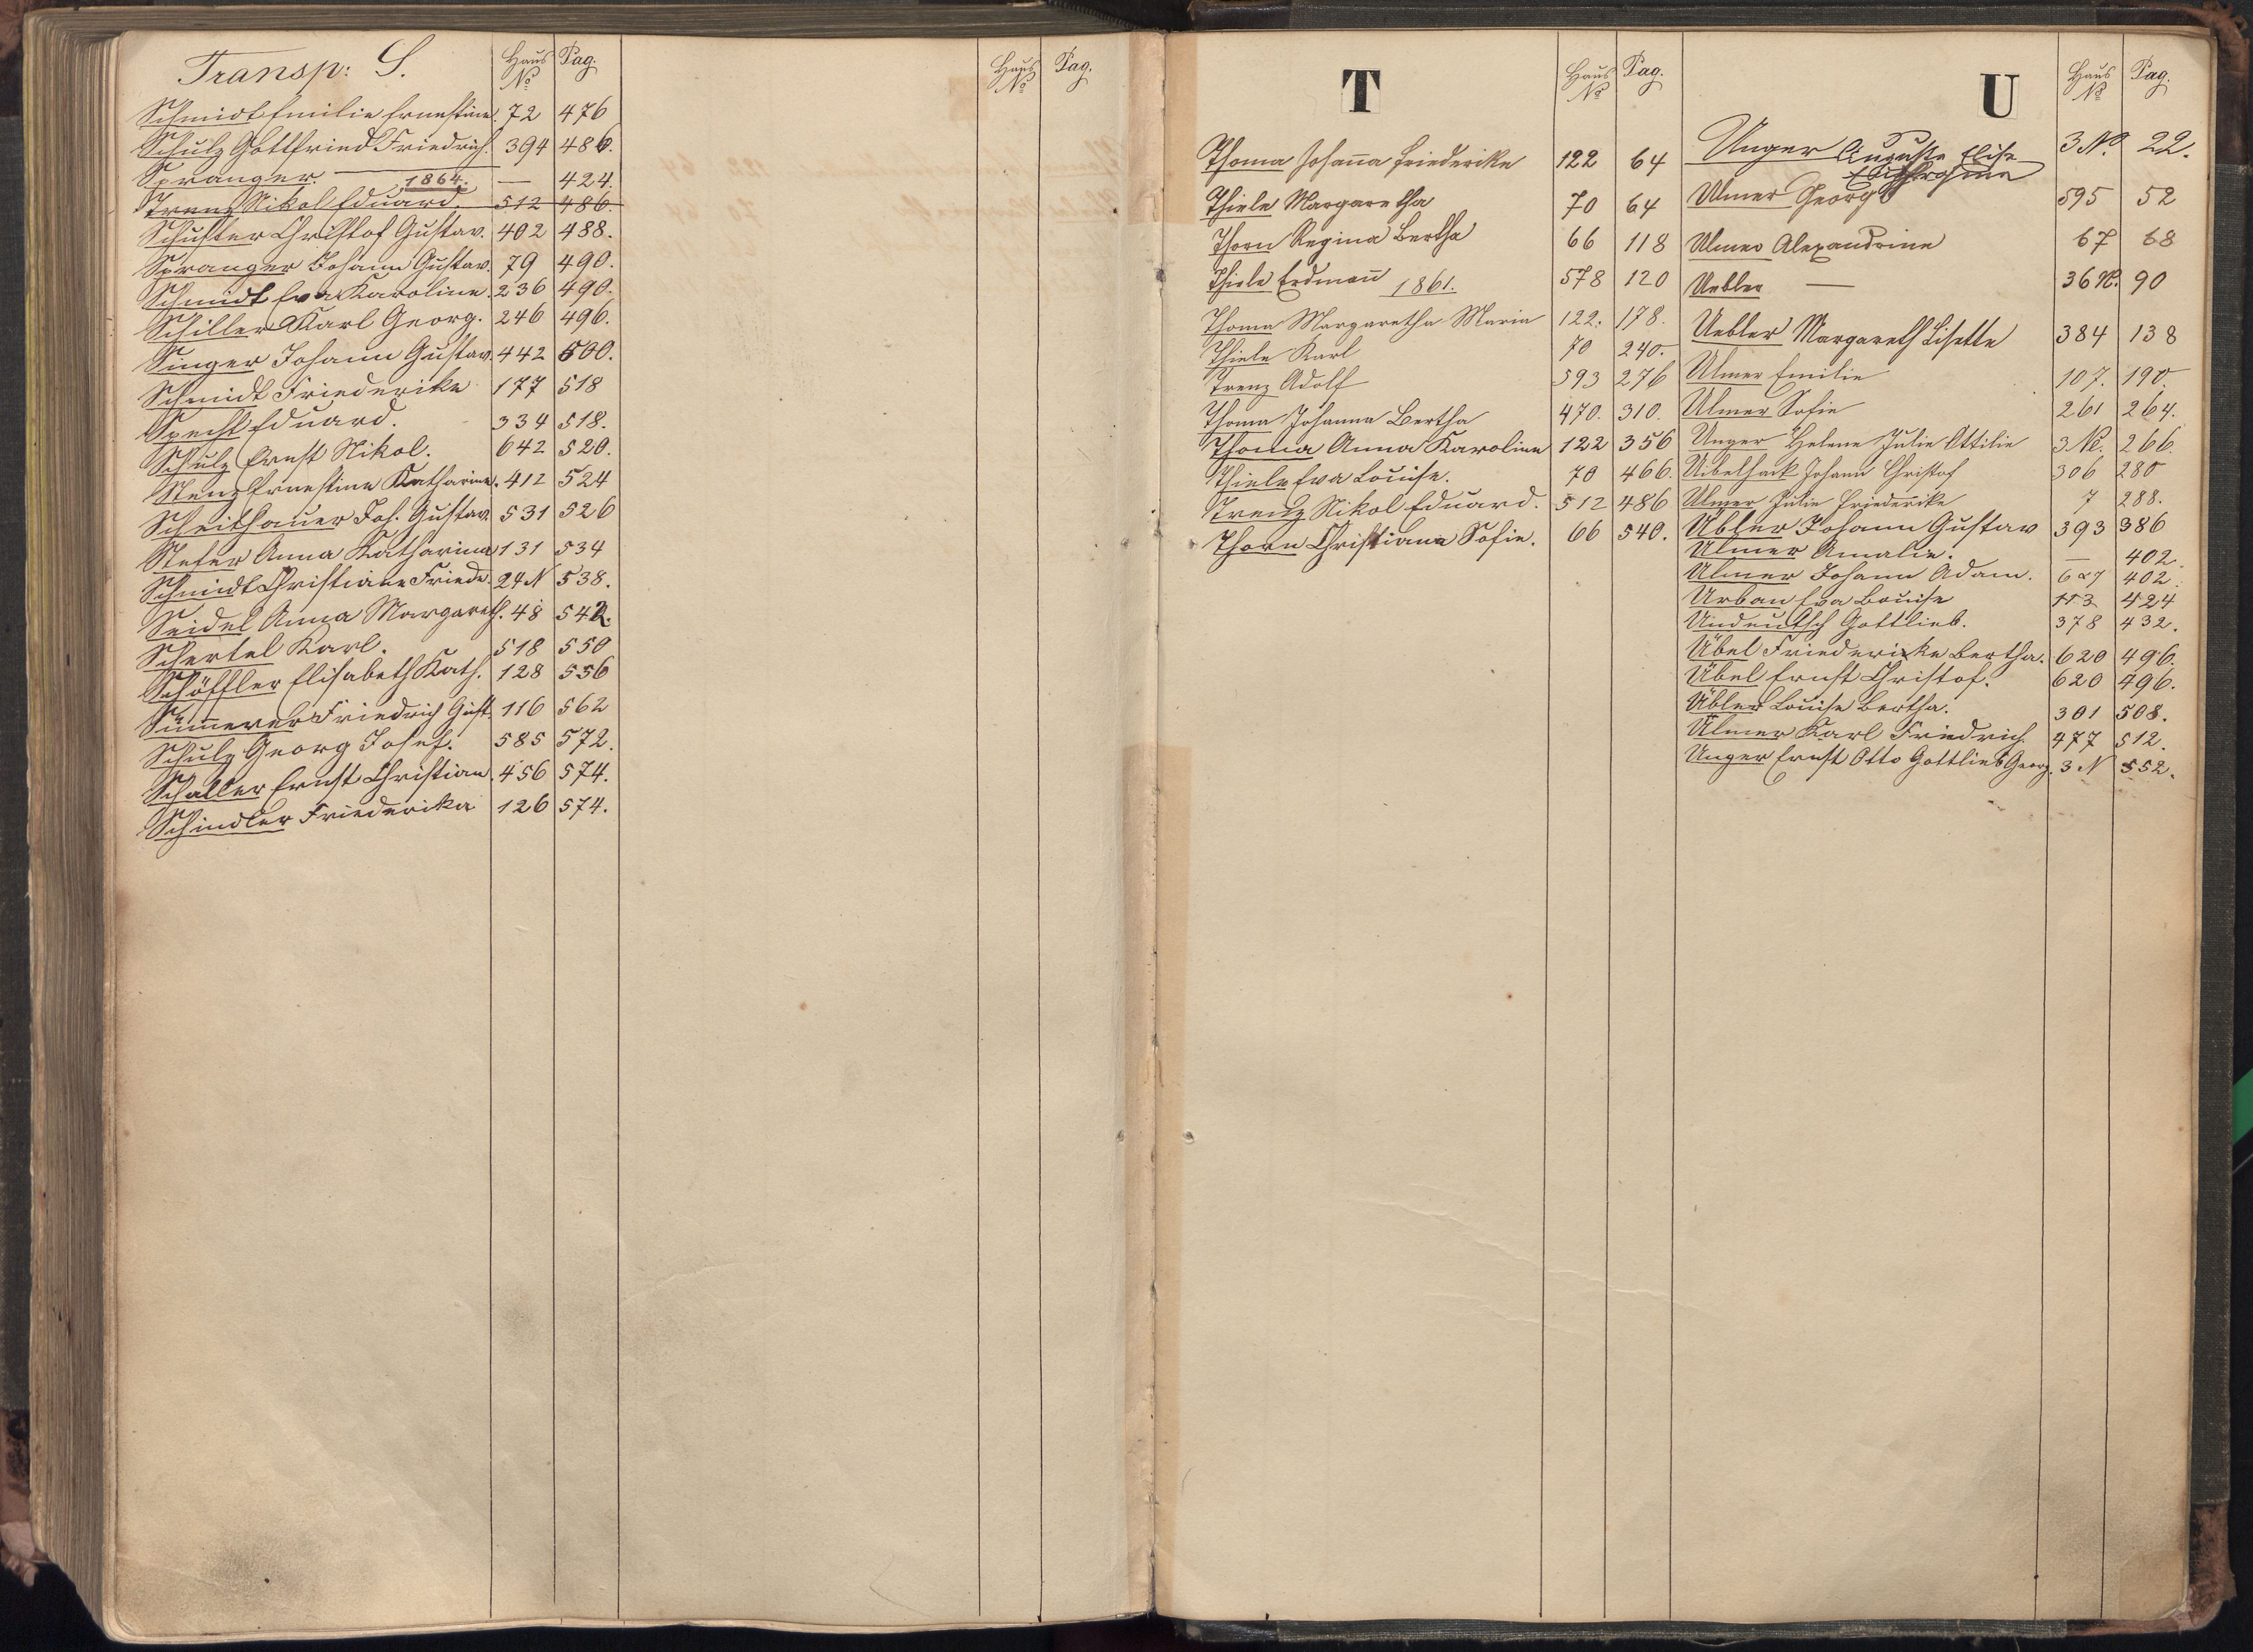 Transp: S. Haus No Pag.
Schmidt Emilie Ernestine. 72 476
Schulz Gottfried Friedrich. 394 486.
Spranger. — — 424.
1864.
Trenz Nikol Eduard. 512 486.
Schuster Christof Gustav. 402 488.
Spranger Johann Gustav. 79 490.
Schmidt Eva Karoline. 236 490.
Schiller Karl Georg. 246 496.
Singer Johann Gustav. 442 500.
Schmidt Friederike 177 518
Specht Eduard. 334 518.
Schulz Ernst Nikol. 642 520.
Stenz Ernestine Katharine. 412 524
Scheithauer Joh. Gustav. 531 526
Stefer Anna Katharina 131 534
Schmidt Christiane Friede. 24 N 538.
Seidel Anna Margareth. 48 542.
Schertel Karl. 518 550
Schöffler Elisabeth Kath. 128 556
Sümmerer Friedrich Gust. 116 562
Schulz Georg Josef. 585 572.
Schaller Ernst Christian. 456 574.
Schindler Friederika 126 574.
Haus No Pag.
T Haus No Pag.
Thoma Johanna Friederike 122 64
Thiele Margaretha 70 64
Thorn Regina Bertha 66 118
Thiele Erdmann 1861. 578 120
Thoma Margaretha Maria 122. 178.
Thiele Karl 70 240.
Trenz Adolf 593 276
Thoma Johanna Bertha 470. 310.
Thoma Anna Karoline 122 356
Thiele Eva Louise. 70 466.
Trenz Nikol Eduard. 512 486
Thorn Christiana Sofie. 66 540.
U Haus No Pag.
Unger Auguste Elise 3 No. 22.
Ulmer Georg 595 52
Ulmer Alexandrine 67 68
Uebler — 36 N. 90
Uebler Margareth Lisette 384 138
Ulmer Emilie 107. 190.
Ulmer Sofie 261 264.
Unger Helene Julie Ottilie 3 No. 266.
Uibelhack Johann Christof 306 280
Ulmer Julie Friederike 7 288.
Übler Johann Gustav 393 386
Ulmer Amalie. — 402.
Ulmer Johann Adam. 627 402.
Urban Eva Louise 113 424
Undeutsch Gottlieb. 378 432.
Übel Friedericke Bertha. 620 496.
Übel Ernst Christof. 620 496.
Übler Louise Bertha. 301 508.
Ulmer Karl Friedrich 477 512.
Unger Ernst Otto Gottlieb Georg. 3 N 552.